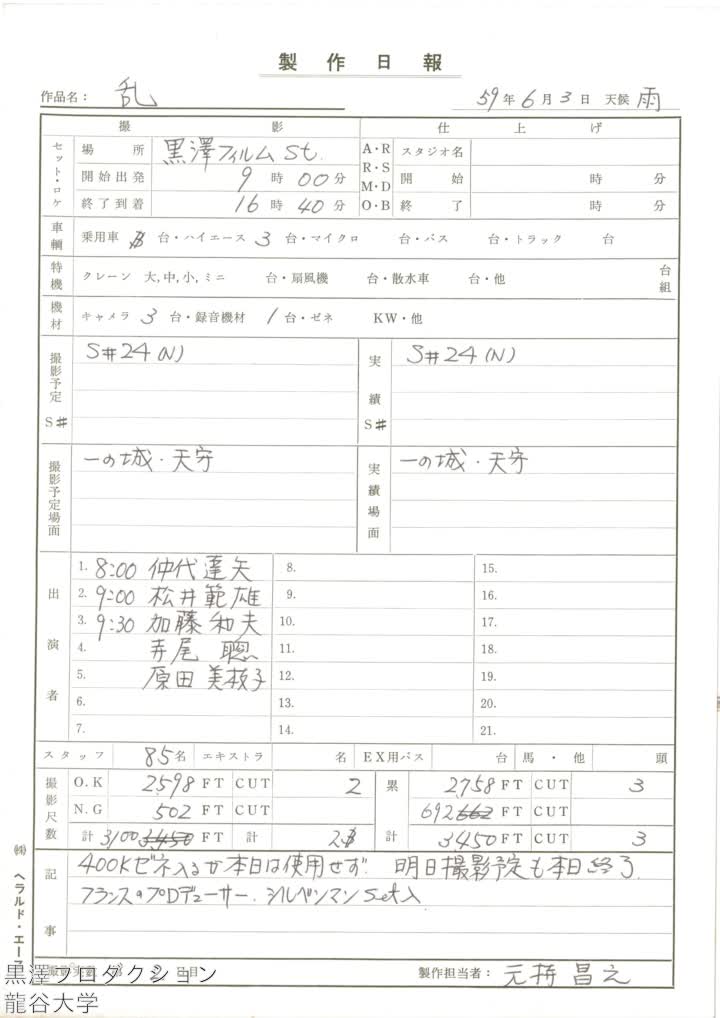 製作日報
作品名： 乱 59年6月3日 天候 雨
撮影 仕上げ
セット・ロケ 場所 黒澤フィルム St. A・R R・S M・D O・B スタジオ名
開始出発 9時00分 開始 時 分
終了到着 16時40分 終了 時 分
車輌 乗用車 台・ハイエース 3 台・マイクロ 台・バス 台・トラック 台
特機 クレーン 大,中,小,ミニ 台・扇風機 台・散水車 台・他 台組
機材 キャメラ 3 台・録音機材 1 台・ゼネ KW・他
撮影予定 S# S#24(N) 実績 S# S#24(N)
撮影予定場面 一の城・天守 実績場面 一の城・天守
出演者
1. 8:00 仲代達矢 8. 15.
2. 9:00 松井範雄 9. 16.
3. 9:30 加藤和夫 10. 17.
4. 寺尾聰 11. 18.
5. 原田美枝子 12. 19.
6. 13. 20.
7. 14. 21.
スタッフ 85名 エキストラ 名 EX用バス 台 馬・他 頭
撮影尺数 O.K 2598 FT CUT 2 累計 2758 FT CUT 3
N.G 502 FT CUT 692 662 FT CUT
計 3100 3450 FT 計 2 3450 FT CUT 3
記事 400Kゼネ入るが本日は使用せず. 明日撮影予定も本日終了.
フランスのプロデューサー. シルベンマン Set入
撮影実数 第 2 日目 製作担当者： 元持昌之
㈱ヘラルド・エース
黒澤プロダクション
龍谷大学